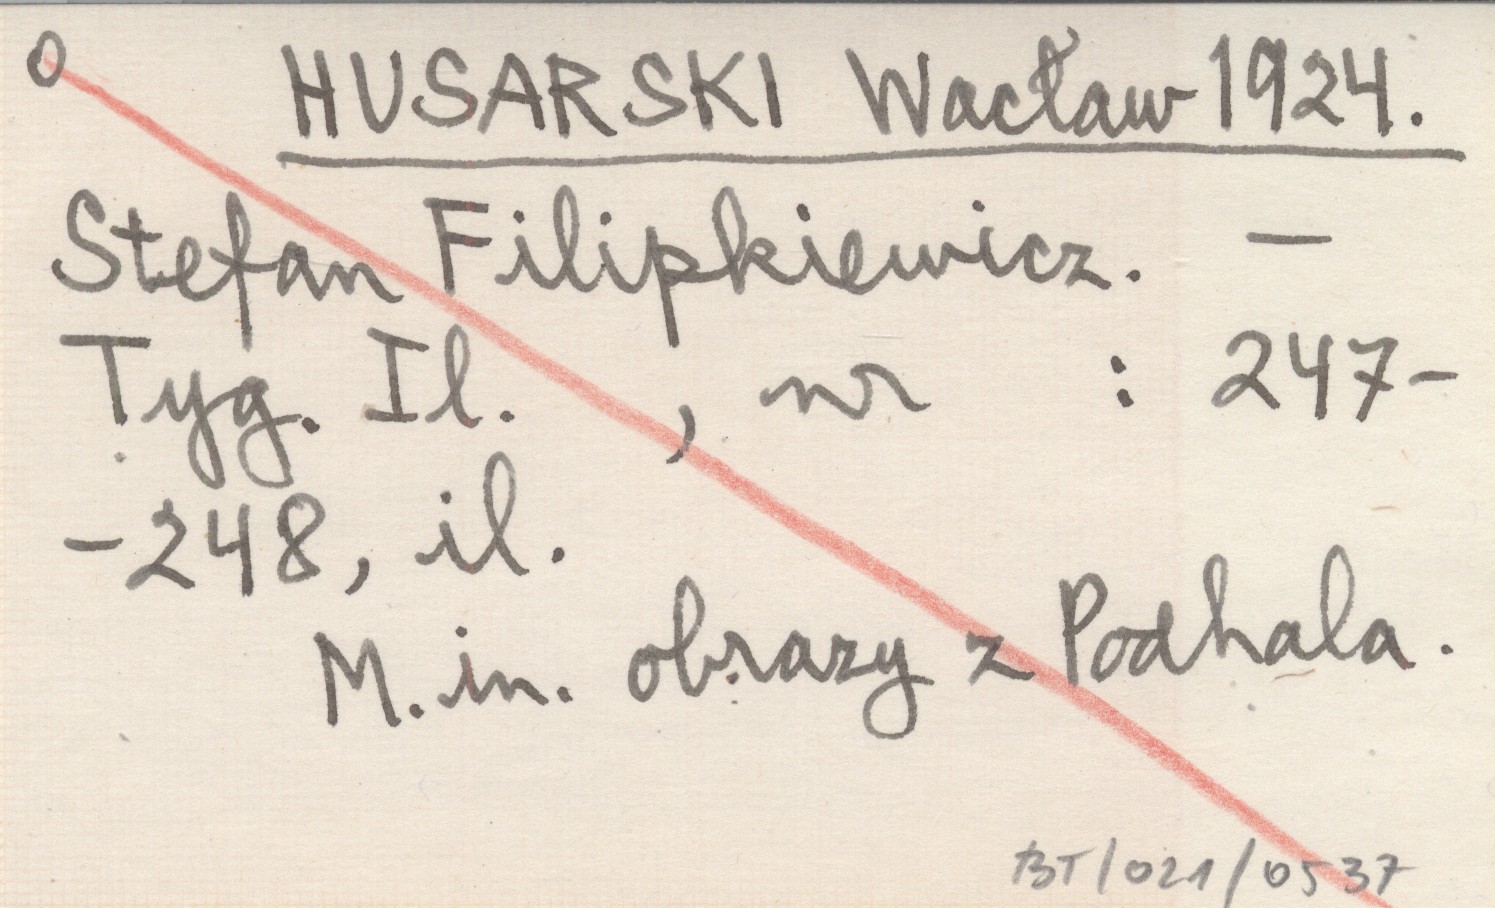 O HUSARSKI Wacław 1924.
Stefan Filipkiewicz. —
Tyg. Il. , nr : 247-
-248, il.
M.in. obrazy z Podhala.
BT/021/0537